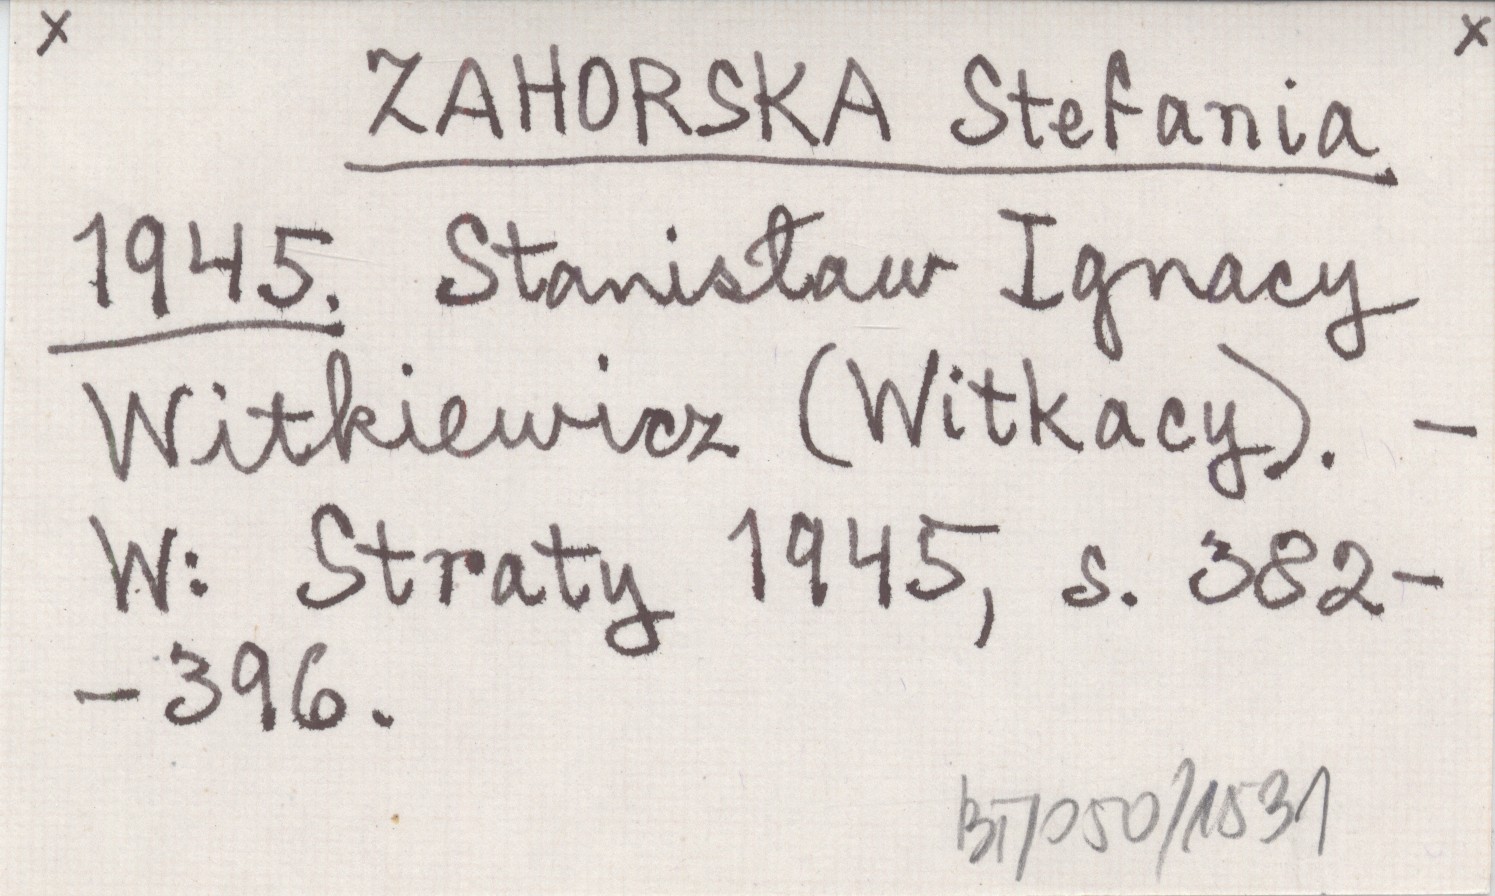 x x
ZAHORSKA Stefania
1945. Stanisław Ignacy
Witkiewicz (Witkacy). -
W: Straty 1945, s. 382-
-396.
BT/050/1531